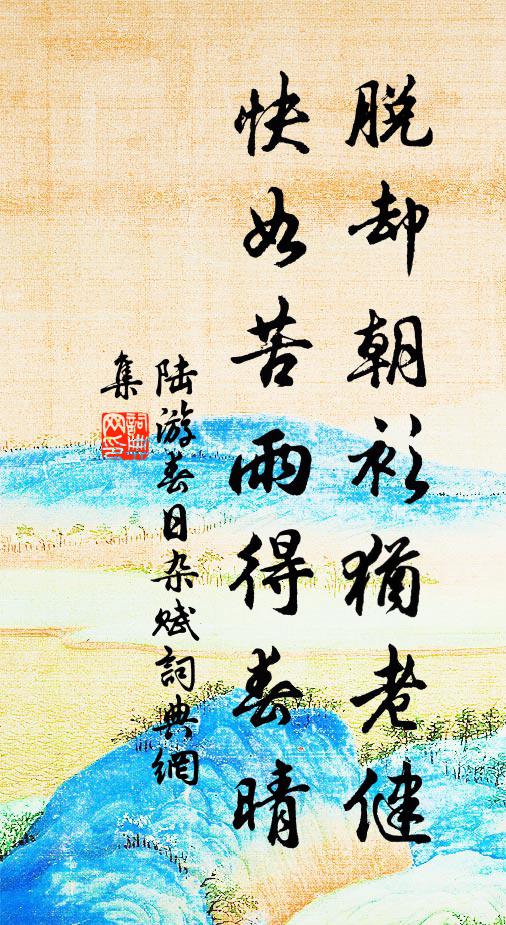 脱却朝衫犹老健
快如苦雨得春晴
陆游春日杂赋詞典網
集
詞典網